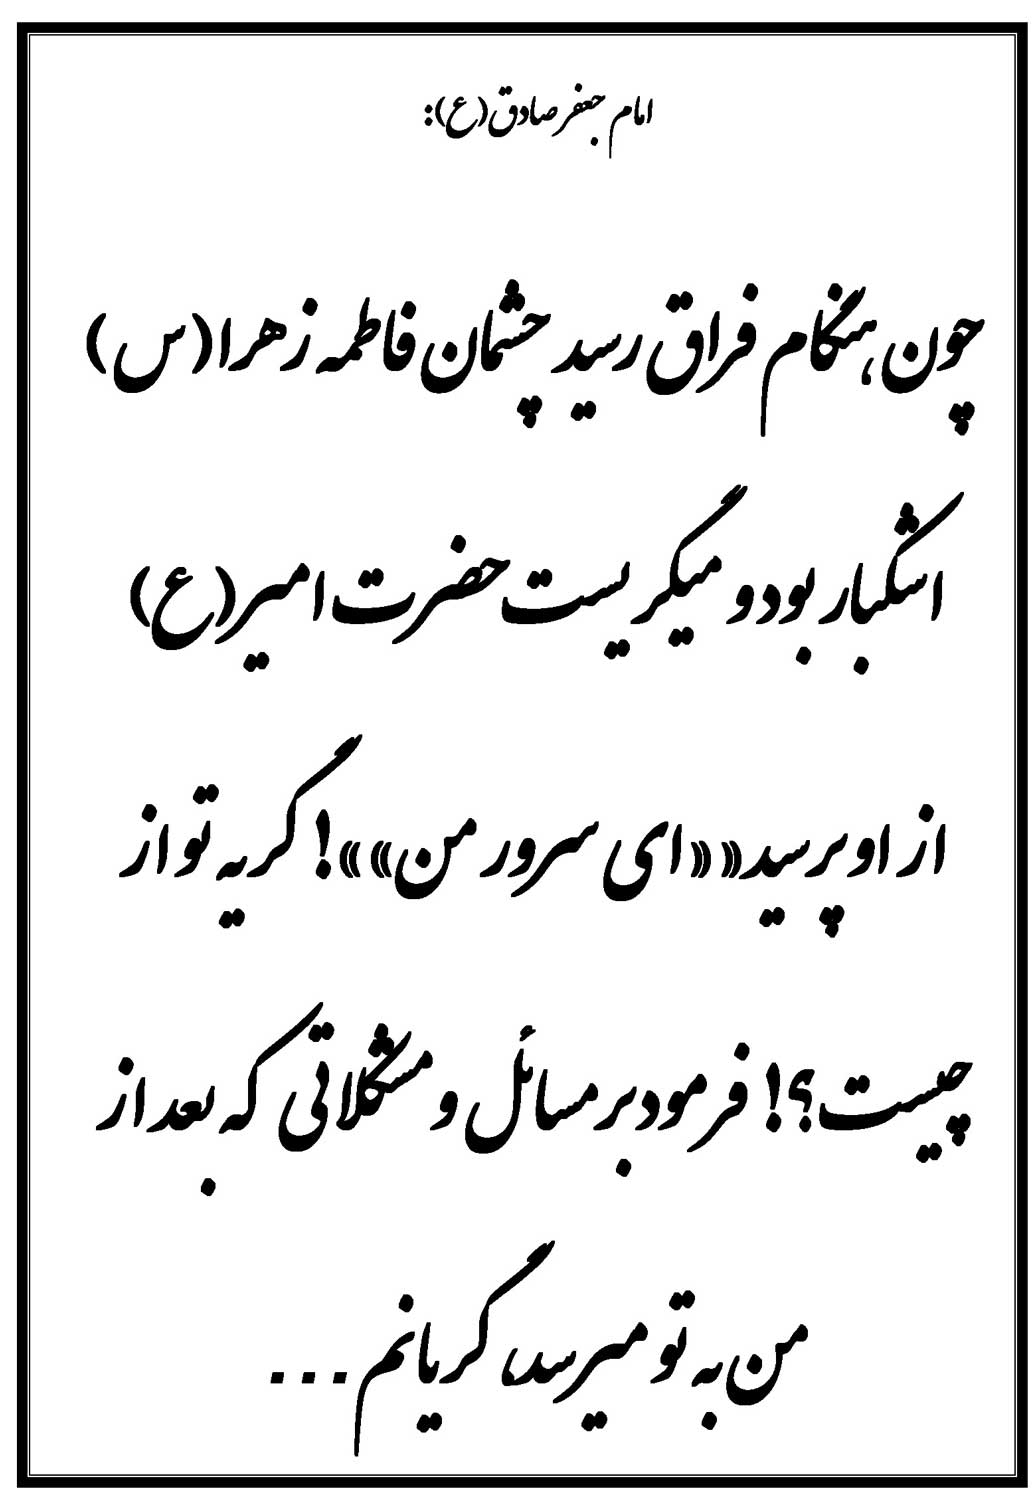 امام جعفر صادق(ع):
چون هنگام فراق رسید چشمان فاطمه زهرا(س)
اشکبار بود و میگریست حضرت امیر(ع)
از او پرسید««ای سرور من»»! گریه تو از
چیست؟! فرمود بر مسائل و مشکلاتی که بعد از
من به تو میرسد، گریانم ...